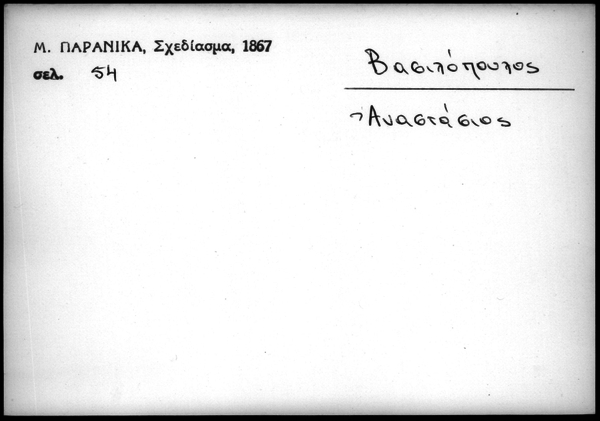 Μ. ΠΑΡΑΝΙΚΑ, Σχεδίασμα, 1867
σελ. 54
Βασιλόπουλος
Ἀναστάσιος